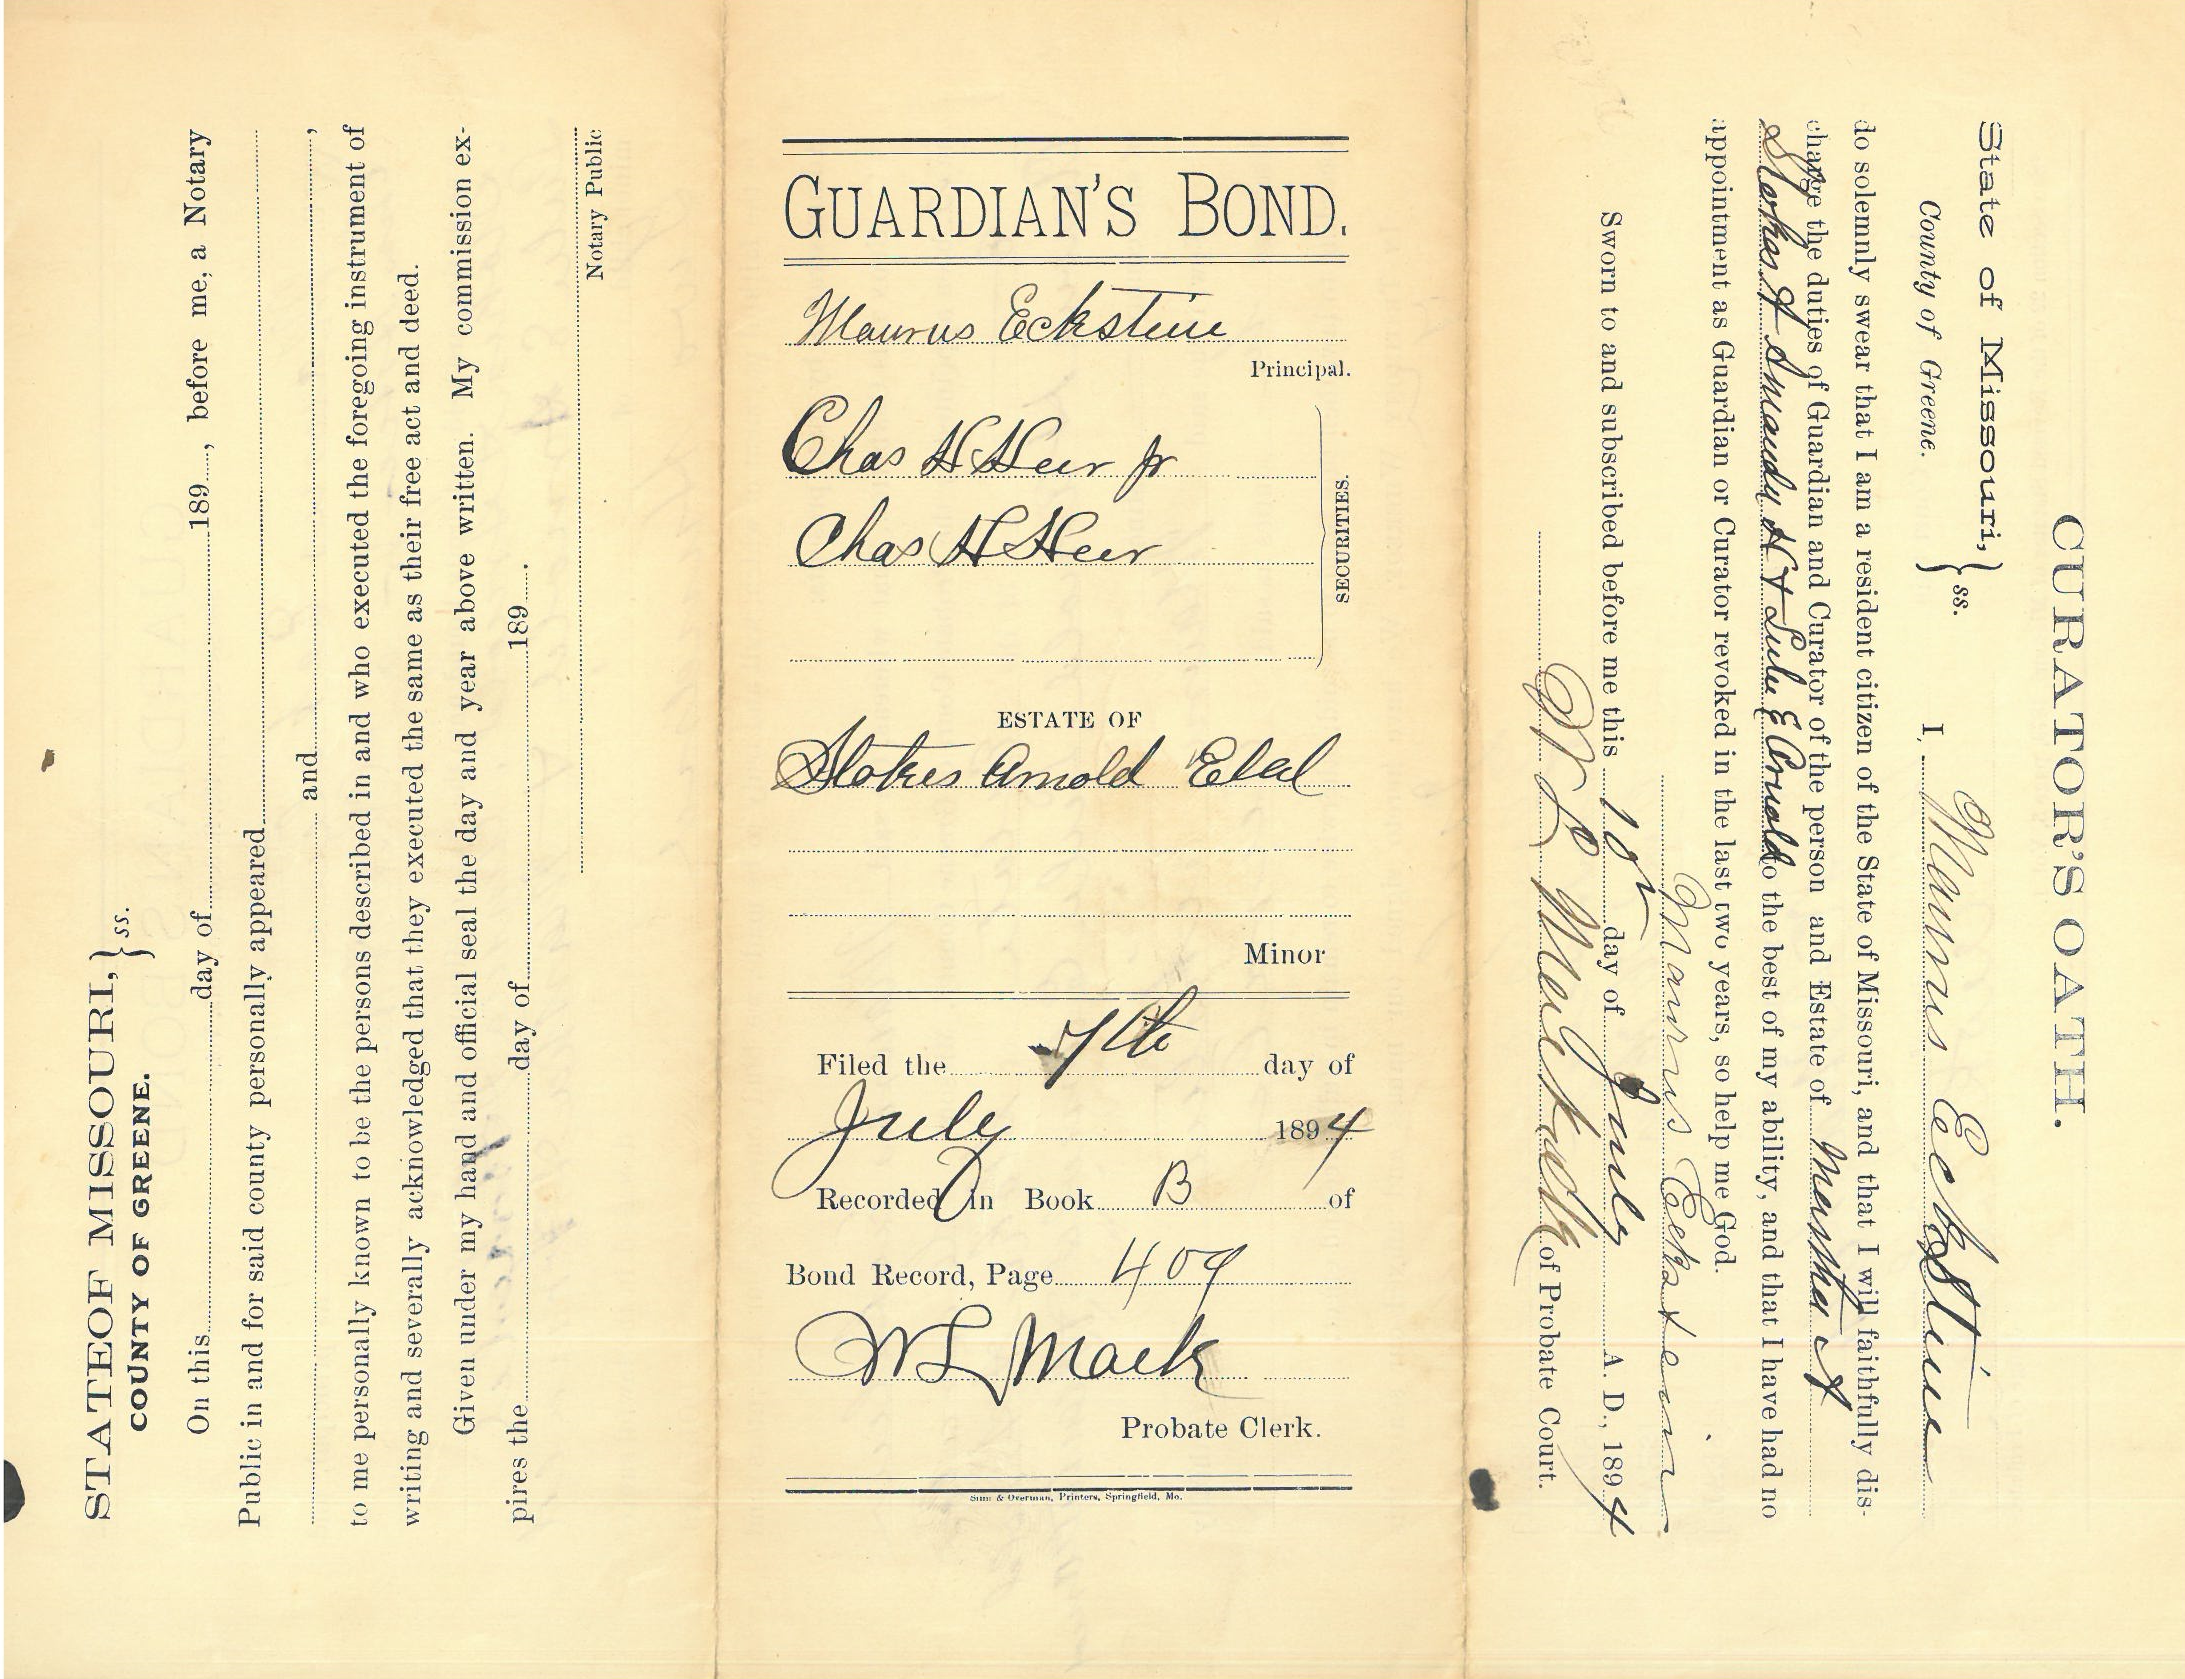 STATE OF MISSOURI, } ss.
COUNTY OF GREENE.
On this day of 189 , before me, a Notary
Public in and for said county personally appeared
and ,
to me personally known to be the persons described in and who executed the foregoing instrument of
writing and severally acknowledged that they executed the same as their free act and deed.
Given under my hand and official seal the day and year above written. My commission ex-
pires the day of 189 .
Notary Public
GUARDIAN'S BOND.
Maurus Eckstine
Principal.
Chas H Heer Jr
Chas H Heer
SECURITIES.
ESTATE OF
Stokes Arnold Etal
Minor
Filed the 7th day of
July 1894
Recorded in Book B of
Bond Record, Page 409
W L Mack
Probate Clerk.
Sims & Overman, Printers, Springfield, Mo.
CURATOR'S OATH.
State of Missouri, } ss.
County of Greene.
I, Maurus Eckstine
do solemnly swear that I am a resident citizen of the State of Missouri, and that I will faithfully dis-
charge the duties of Guardian and Curator of the person and Estate of Martha A
Stokes A Amandy H & Lulu E Arnold to the best of my ability, and that I have had no
appointment as Guardian or Curator revoked in the last two years, so help me God.
Maurus Eckstein
Sworn to and subscribed before me this day of July A. D., 1894
W L Mack of Probate Court.